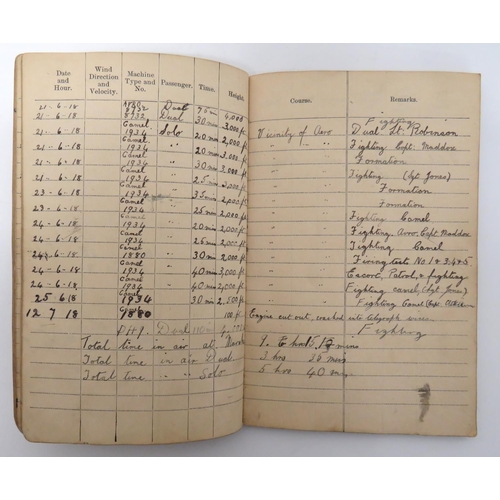 Date and Hour. Wind Direction and Velocity. Machine Type and No. Passenger. Time. Height. Course. Remarks.
Fighting
21-6-18 8932 Dual 4,000
21-6-18 8932 Dual 30 min 3,000 ft Dual Lt. Robinson
Camel
21-6-18 1934 Solo 20 min 2,000 ft Vicinity of Aero Fighting Capt. Maddox
Camel
21-6-18 1934 " 20 min 2,000 ft " " Formation
Camel
21-6-18 1934 " 30 min 3,000 ft " " Fighting (Sgt Jones)
Camel
21-6-18 1934 " 25 min " " Formation
Camel
23-6-18 1934 " 35 min " " Formation
Camel
23-6-18 1934 " 20 min 2,000 ft " " Fighting Camel
Camel
24-6-18 1934 " 20 min 2,000 ft " " Fighting Avro. Capt. Maddox
Camel
24-6-18 1934 " 25 min 2,000 ft " " Fighting Camel
Camel
24-6-18 1880 " 30 min 2,000 ft " " Firing test No 1 & 3 & 4 & 5
Camel
24-6-18 1934 " 40 min 3,000 ft " " Escort, Patrol, & fighting
Camel
24-6-18 1934 " 40 min 3,000 ft " " Fighting camel, (Sgt Jones)
Camel
25 6 18 1934 " 30 min 2,500 ft " " Fighting Camel (Capt.
12 7 18 9880 100 ft Engine cut out, crashed into telegraph wires
Dual Fighting
Total time in air at mins
Total time in air Dual 3 hrs 36 mins
Total time " " Solo 5 hrs 40 m